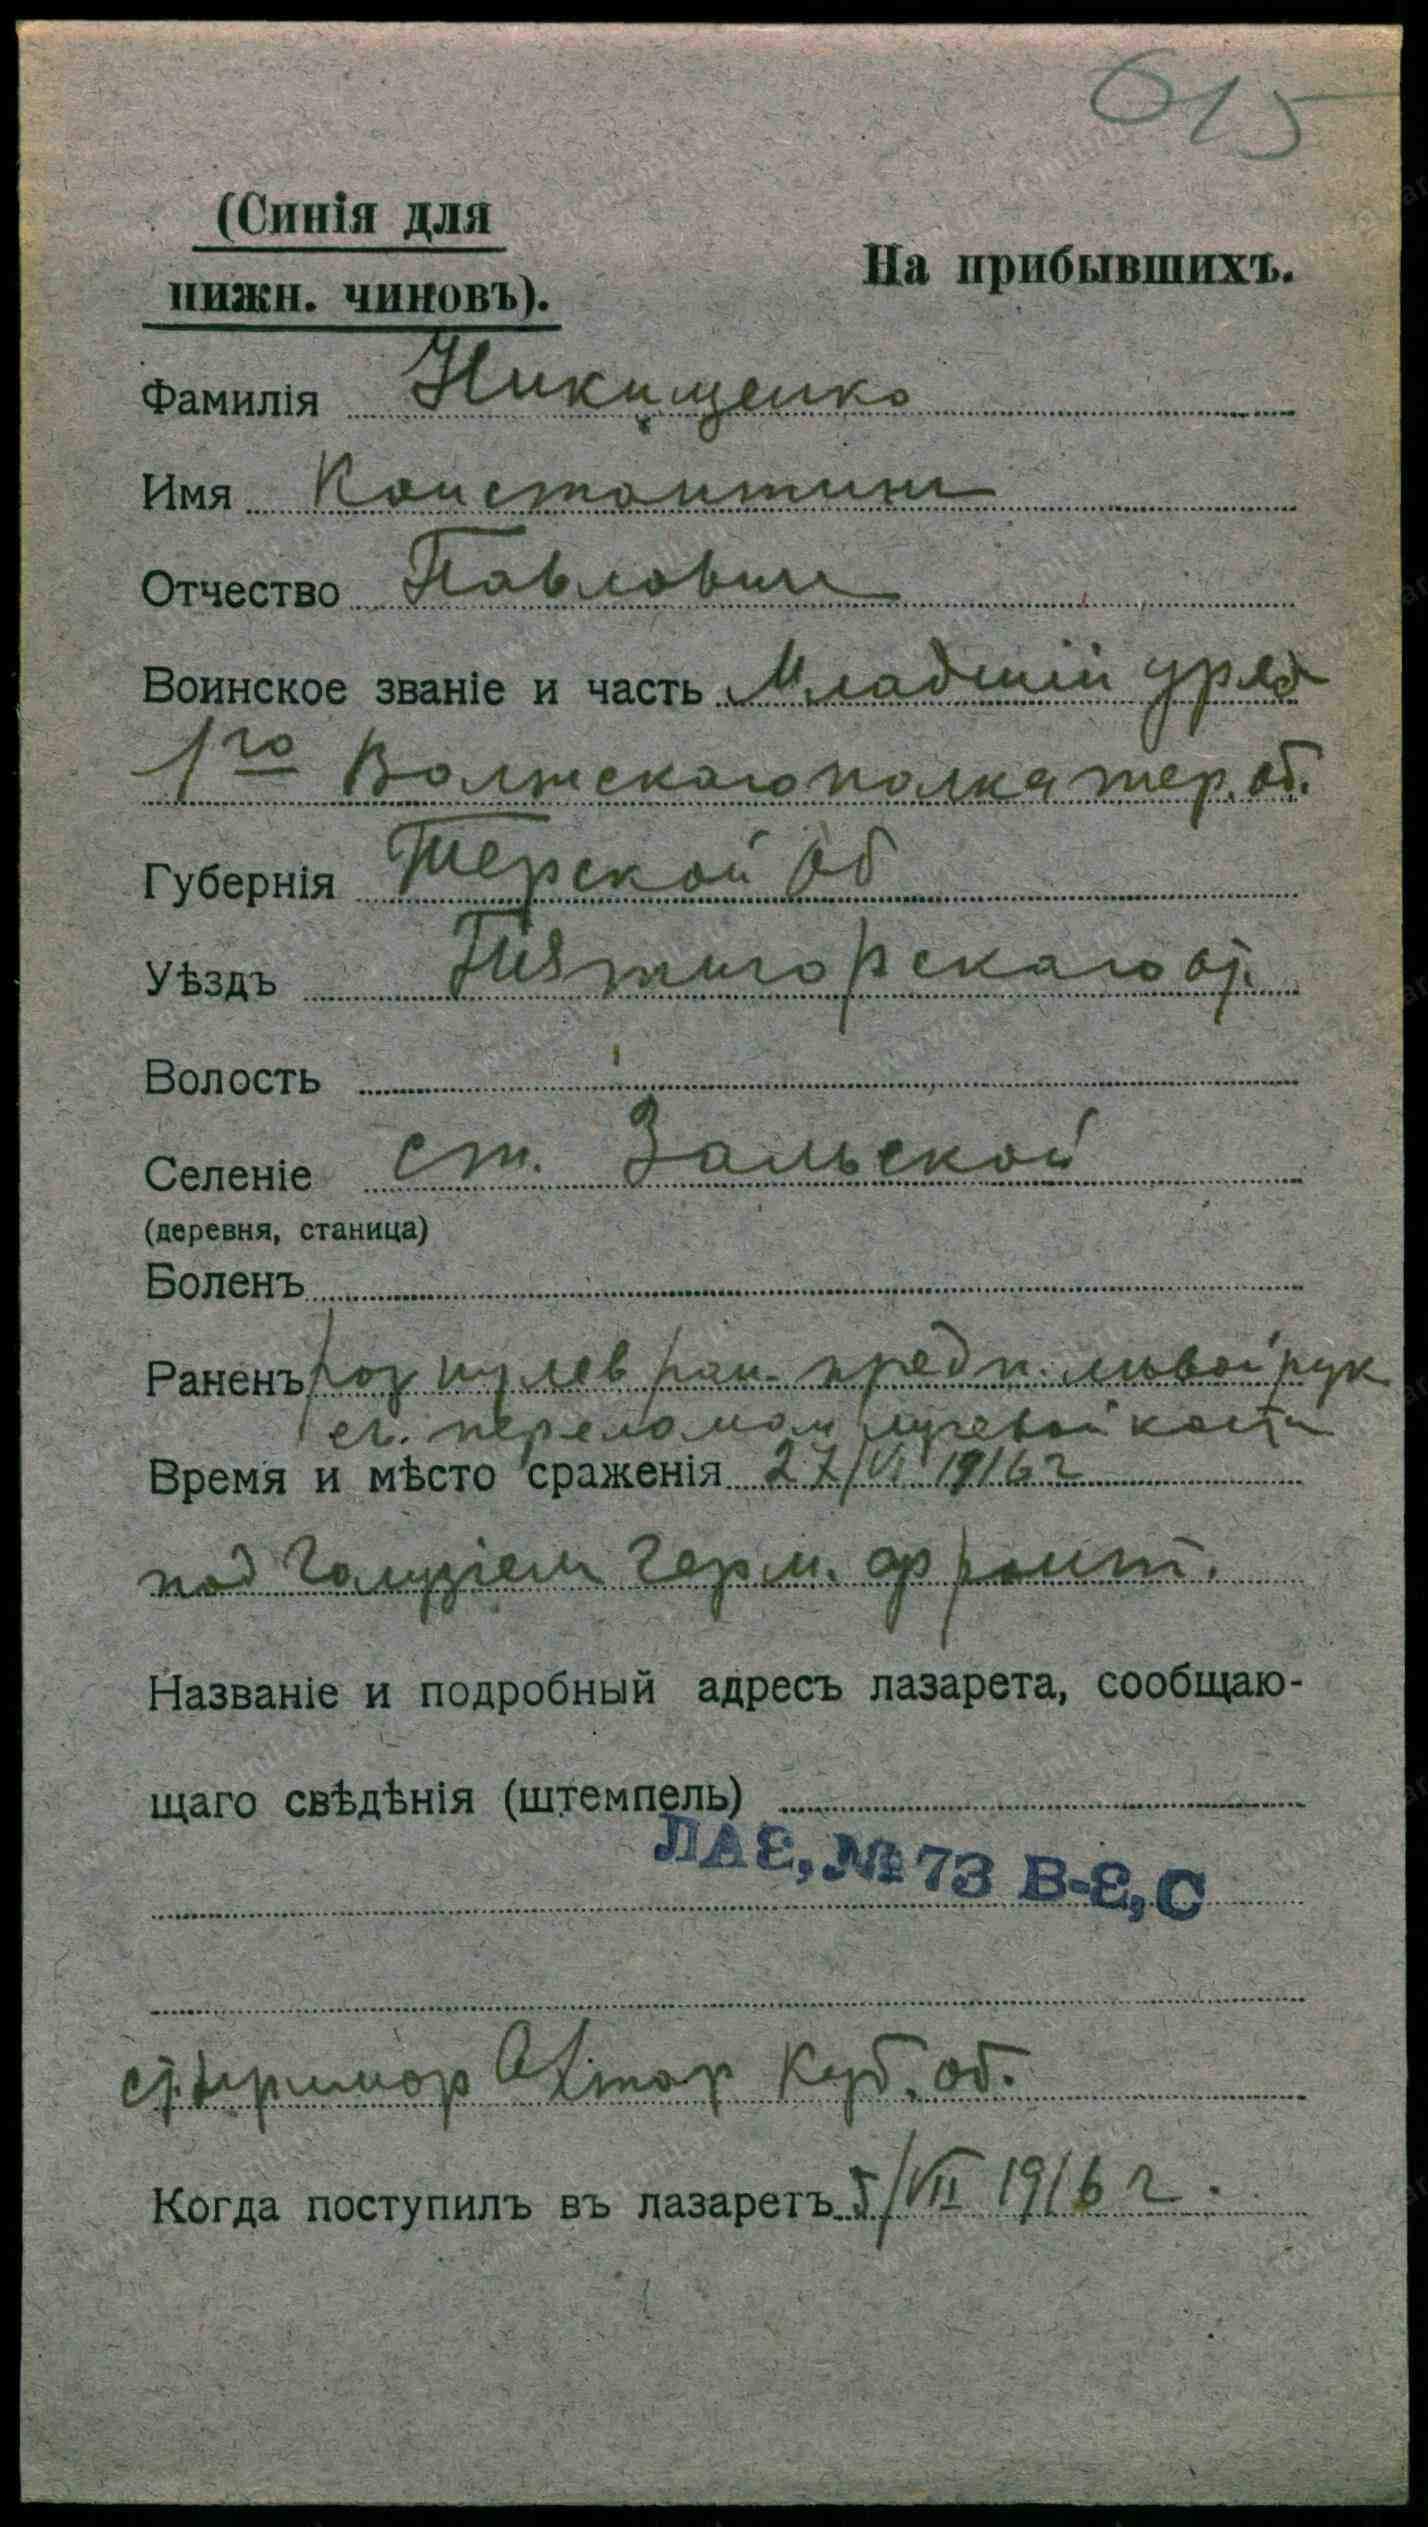 615
(Синія для
нижн. чиновъ).
На прибывшихъ.
Фамилія Никищенко
Имя Константинъ
Отчество Павловичъ
Воинское званіе и часть Младшій уряд
1го Волжскаго полка тер. об.
Губернія Терской Об
Уѣздъ Пятигорскаго от.
Волость
Селеніе ст. Зальской
(деревня, станица)
Боленъ
Раненъ пулев ран. предп. лѣвой рук
съ. переломом лучевой кости
Время и мѣсто сраженія 27/VI 1916 г
под Галузіем Герм. фронт.
Названіе и подробный адресъ лазарета, сообщаю-
щаго свѣдѣнія (штемпель)
ЛАЕ, № 73 В-Е, С
ст. примор Ахтар Куб. об.
Когда поступилъ въ лазаретъ 5/VII 1916 г.